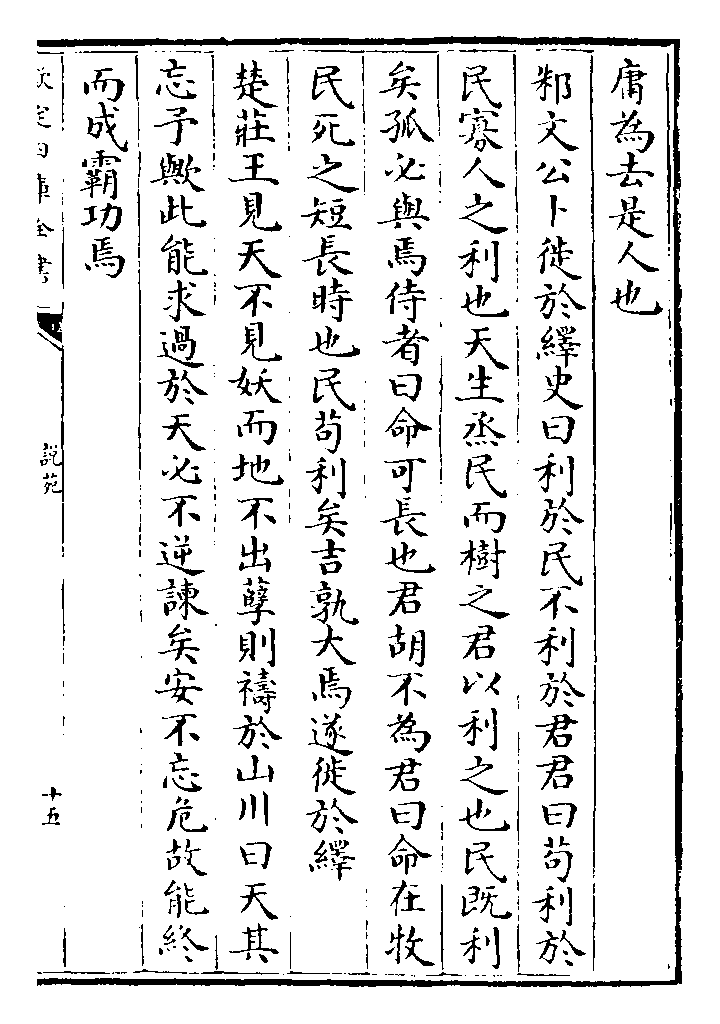 庸為去是人也
邾文公卜徙於繹史曰利於民不利於君君曰苟利於
民寡人之利也天生烝民而樹之君以利之也民既利
矣孤必與焉侍者曰命可長也君胡不為君曰命在牧
民死之短長時也民苟利矣吉孰大焉遂徙於繹
楚莊王見天不見妖而地不出孽則禱於山川曰天其
忘予歟此能求過於天必不逆諫矣安不忘危故能終
而成霸功焉
欽定四庫全書
說苑
十五